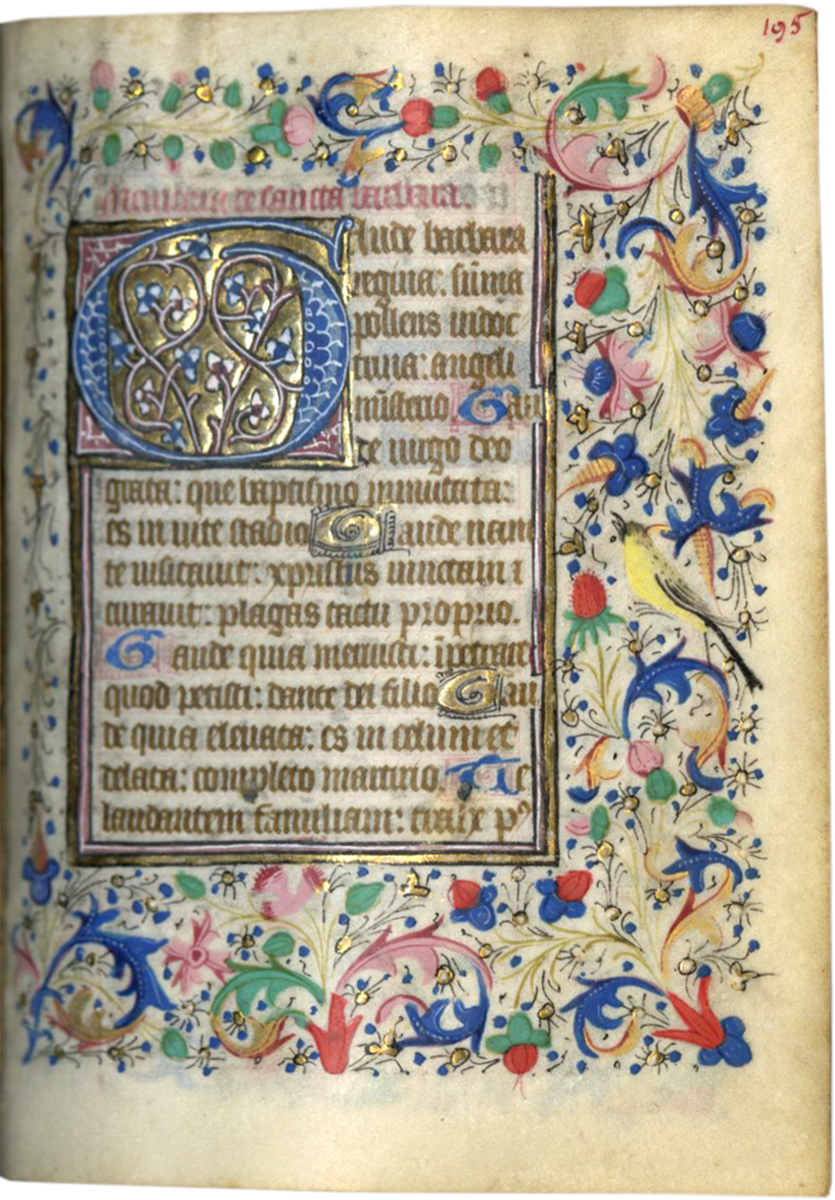 195
de sancta barbara.
Gaude barbara
regina: sūma
pollens in doc
trina: angeli
misterio Gau
de uirgo deo
grata: que baptismo
es in uite stadio Gaude nam
te uisitauit: xpristus
curauit: plagas tactu proprio.
Gaude quia meruisti: īpetrare
quod petisti: dante dei filio Gau
de quia eleuata: es in celum et
delata: completo martirio Te
laudantem familiam: trahe p⁹